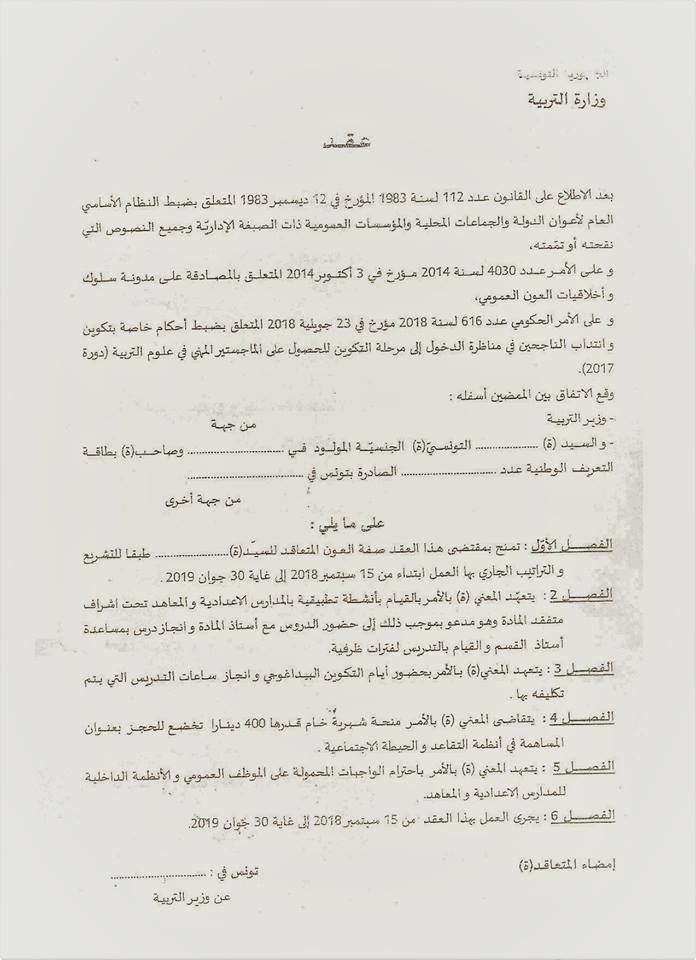 الجمهورية التونسية
وزارة التربية
عقد
بعد الاطلاع على القانون عدد 112 لسنة 1983 المؤرخ في 12 ديسمبر 1983 المتعلق بضبط النظام الأساسي
العام لأعوان الدولة والجماعات المحلية والمؤسسات العمومية ذات الصبغة الإداريّة وجميع النصوص التي
نقحته أو تمّمته،
و على الأمر عدد 4030 لسنة 2014 مؤرخ في 3 أكتوبر 2014 المتعلق بالمصادقة على مدونة سلوك
و أخلاقيات العون العمومي،
و على الأمر الحكومي عدد 616 لسنة 2018 مؤرخ في 23 جويلية 2018 المتعلق بضبط أحكام خاصة بتكوين
و انتداب الناجحين في مناظرة الدخول إلى مرحلة التكوين للحصول على الماجستير المهني في علوم التربية (دورة
2017).
وقع الاتفاق بين الممضين أسفله :
- وزير التربية من جهة
- و السيد (ة) .................. التونسيّ(ة) الجنسيّة المولود في .......................... وصاحب(ة) بطاقة
التعريف الوطنية عدد .......................... الصادرة بتونس في ................................
من جهة أخرى
على ما يلي :
الفصل الأوّل : تمنح بمقتضى هذا العقد صفة العون المتعاقد للسيّد(ة).................... طبقا للتشريع
و التراتيب الجاري بها العمل ابتداء من 15 سبتمبر 2018 إلى غاية 30 جوان 2019 .
الفصل 2 : يتعهّد المعني (ة) بالأمر بالقيام بأنشطة تطبيقية بالمدارس الاعدادية و المعاهد تحت اشراف
متفقد المادة وهو مدعو بموجب ذلك إلى حضور الدروس مع أستاذ المادة و انجاز درس بمساعدة
أستاذ القسم و القيام بالتدريس لفترات ظرفية.
الفصل 3 : يتعهد المعني(ة) بالأمر بحضور أيام التكوين البيداغوجي و انجاز ساعات التدريس التي يتم
تكليفه بها .
الفصل 4 : يتقاضى المعني (ة) بالأمر منحة شهرية خام قدرها 400 دينارا تخضع للحجز بعنوان
المساهمة في أنظمة التقاعد و الحيطة الاجتماعية .
الفصل 5 : يتعهد المعني (ة) بالأمر باحترام الواجبات المحمولة على الموظف العمومي و الأنظمة الداخلية
للمدارس الاعدادية و المعاهد.
الفصل 6 : يجرى العمل بهذا العقد من 15 سبتمبر 2018 إلى غاية 30 جوان 2019.
إمضاء المتعاقد(ة) تونس في : ..........................
عن وزير التربية